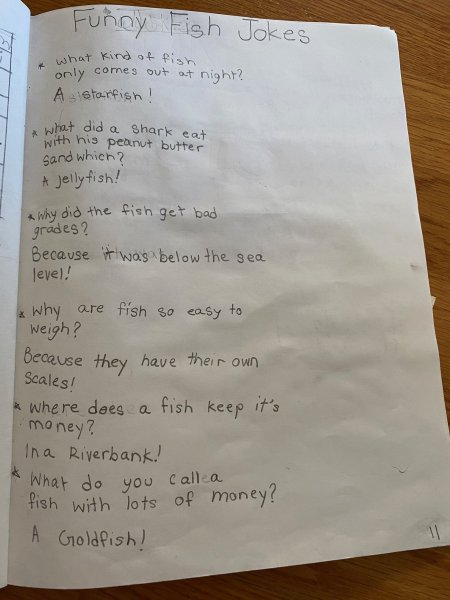 Funny Fish Jokes
* what kind of fish
only comes out at night?
A starfish!
* what did a shark eat
with his peanut butter
sandwhich?
A jellyfish!
* why did the fish get bad
grades?
Because it was below the sea
level!
* Why are fish so easy to
weigh?
Because they have their own
scales!
* where does a fish keep it's
money?
In a Riverbank!
* What do you call a
fish with lots of money?
A Goldfish!
11